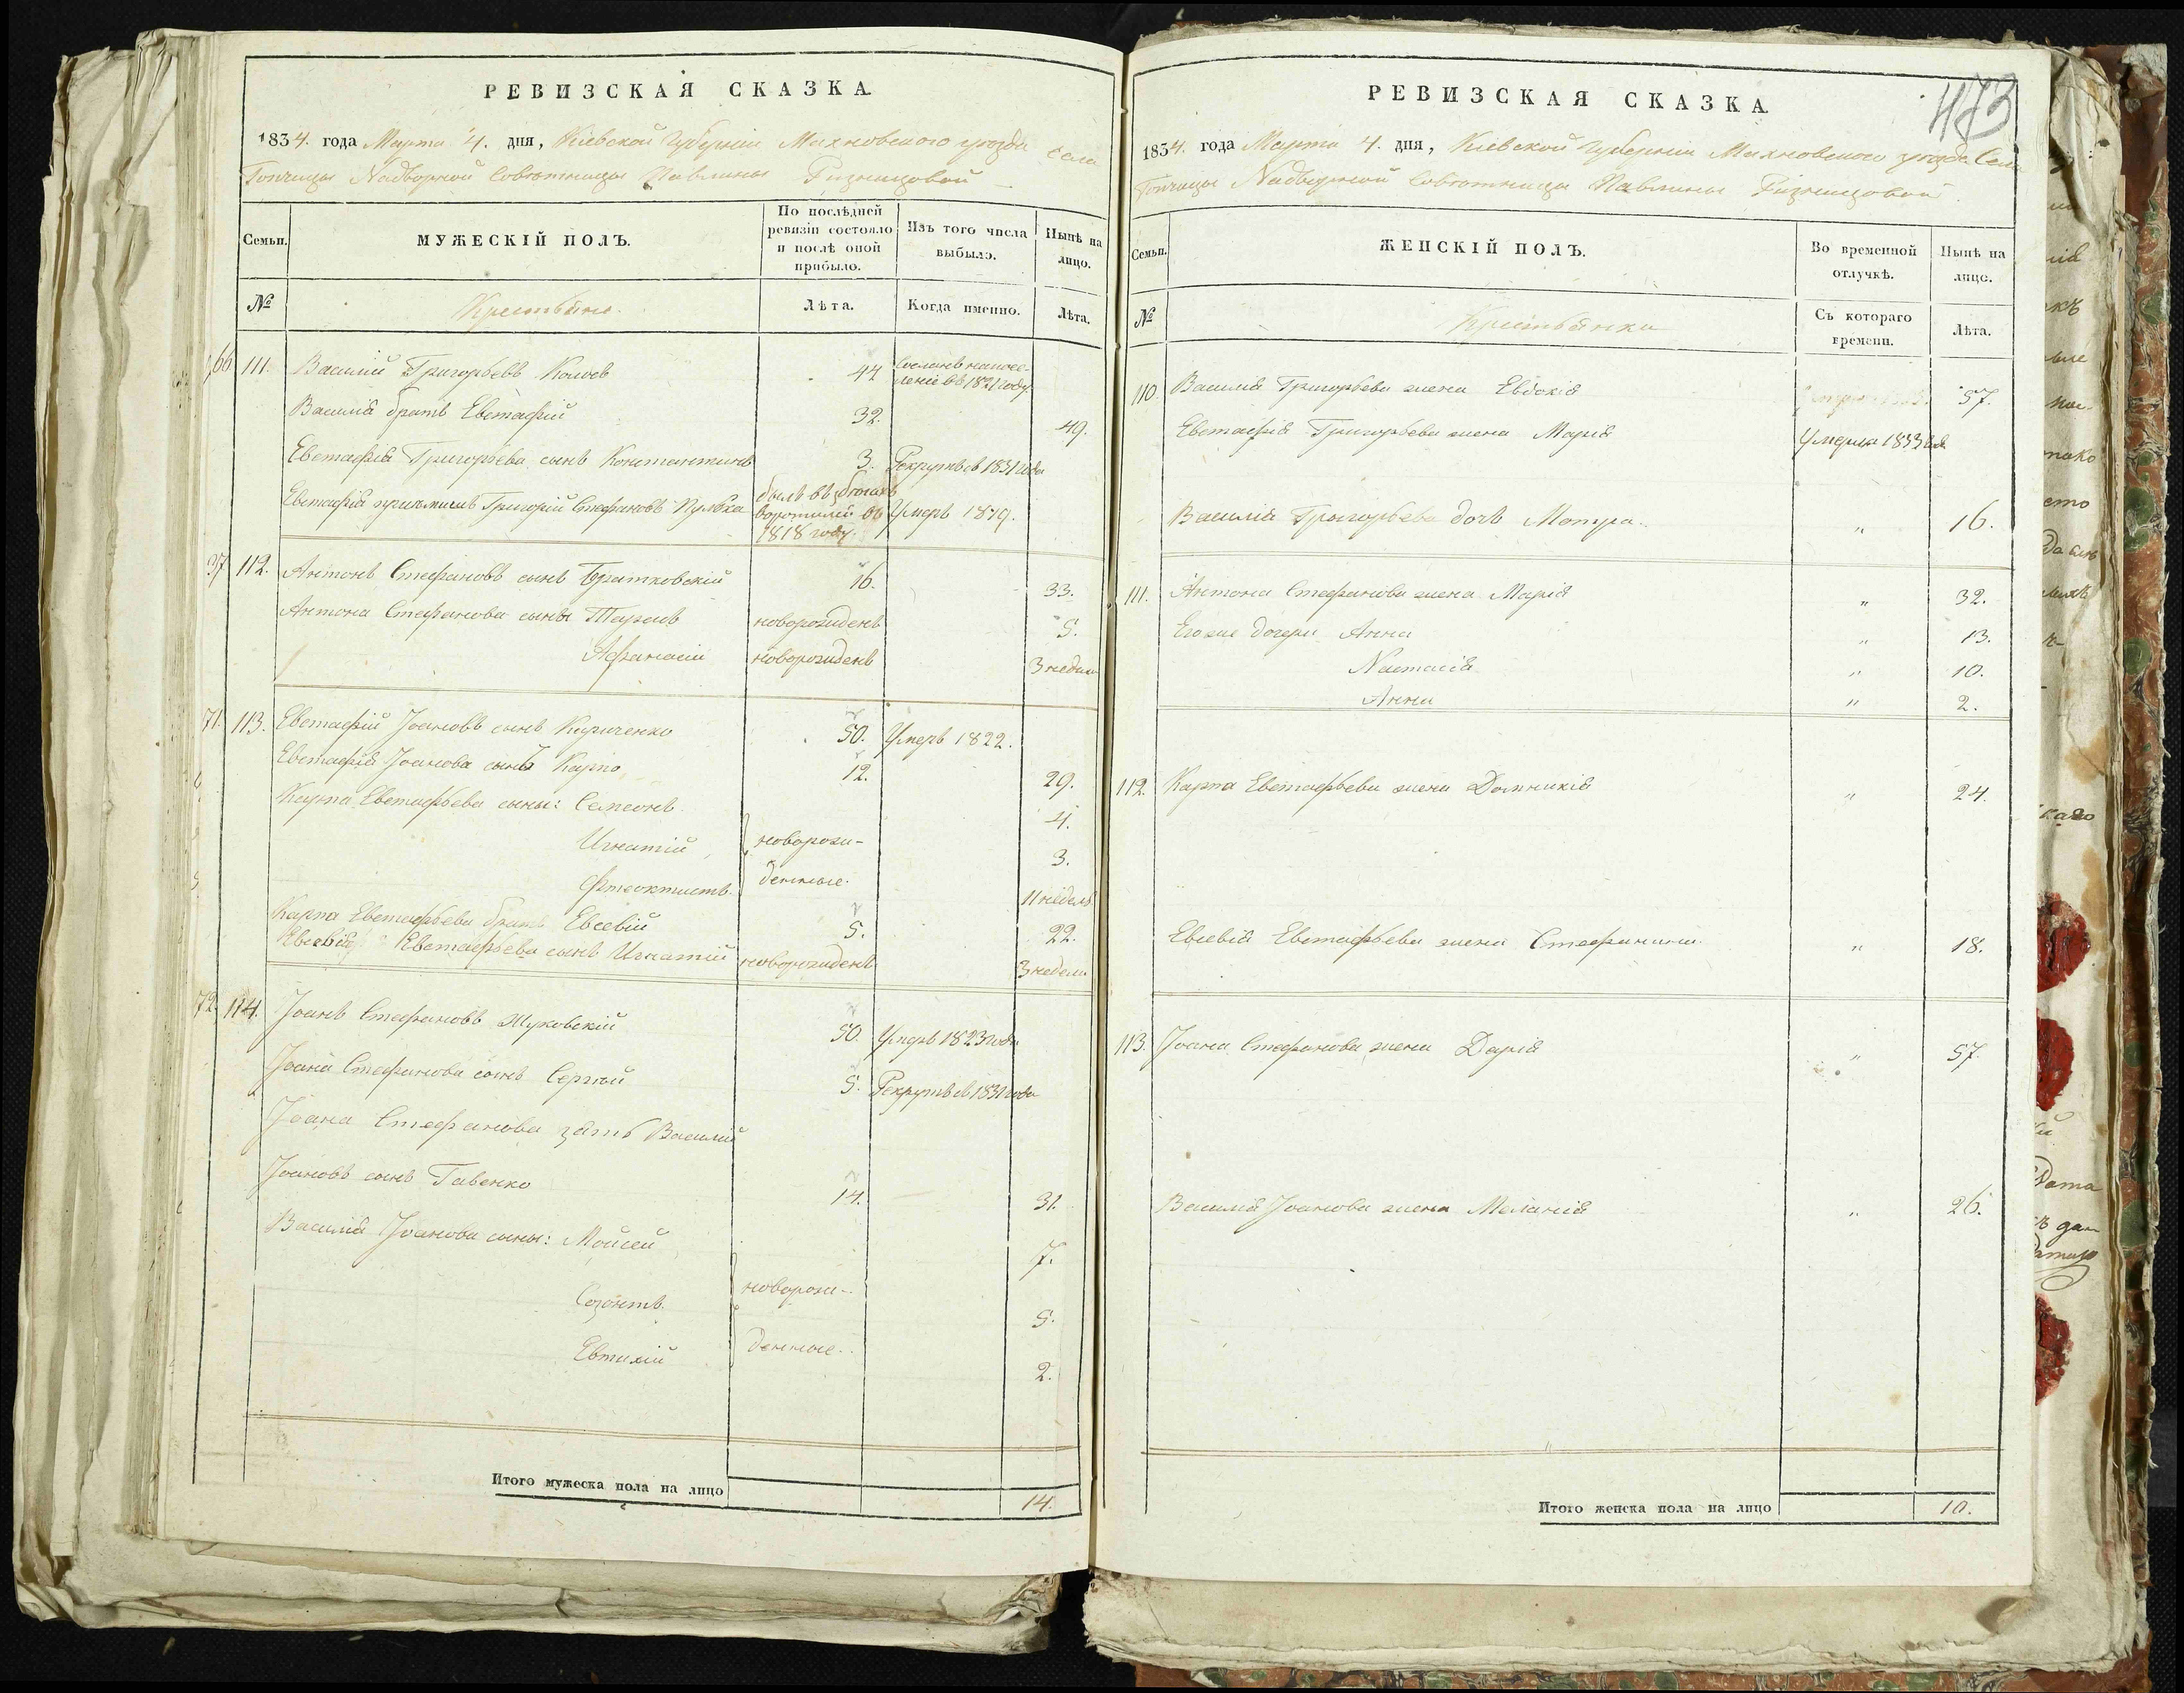 РЕВИЗСКАЯ СКАЗКА
1834. года Марта 4. дня, Кіевской Губерніи Махновского уезда села
Топчицы Надворной Советницы Павлины Ризничовой
Семьи.
МУЖЕСКІЙ ПОЛЪ.
По послѣдней
ревизіи состояло
и послѣ оной
прибыло.
Изъ того числа
выбыло.
Нынѣ на
лицо.
№
Крестьяне.
Лѣта.
Когда именно.
Лѣта.
66 111. Василий Григорьевъ 44 Сосланъ на посе-
леніе въ 1821 году
Василія братъ Евстафій 32. 49.
Евстафія Григорьева сынъ Константинъ 3. Рекрутъ въ 1831 года
Евстафія Григорій Стефановъ былъ въ бегахъ
воротился въ Умеръ 1819.
1818 году.
37 112. Антонъ Стефановъ сынъ Братковскій 16. 33.
Антона Стефанова сыны Тарасъ новорожденъ 5.
Афанасій новорожденъ 3 недели
71. 113. Евстафій Іоановъ сынъ Кириченко 50. Умеръ 1822.
Евстафія Іоанова сынъ Карпо 12. 29.
Карпа Евстафьева сыны: Семеонъ 4.
Игнатій новорож- 3.
Фтеоктистъ. денные. 11 недель
Карпа Евстафьева братъ Евсевій 5. 22.
Евсевія Евстафьева сынъ Игнатий новорожденъ 3 недели
72. 114. Іоанъ Стефановъ Жуковскій 50. Умеръ 1823 года
Іоана Стефанова сынъ Сергѣй 5. Рекрутъ въ 1831 года
Іоана Стефанова зять Василій
Іоановъ сынъ Гавенко 14. 31.
Василія Іоанова сыны: Мойсей 7.
Созонтъ. новорож-. 5.
Евтихій денные.. 2.
Итого мужеска пола на лицо 14.
473
РЕВИЗСКАЯ СКАЗКА
1834. года Марта 4. дня, Кіевской Губерніи Махновского уезда Села
Топчицы Надворной Советницы Павлины Ризничовой
Семьи.
ЖЕНСКІЙ ПОЛЪ.
Во временной
отлучкѣ.
Нынѣ на
лице.
№
Крестьянки
Съ котораго
времени.
Лѣта.
110. Василія Григорьева жена Евдокія 57.
Евстафія Григорьева жена Марія Умерла 1833 года
Василія Григорьева дочь Мотра.. " 16.
111. Антона Стефанова жена Марія " 32.
Его же дочери Анна " 13.
Настасія " 10.
Анна " 2.
112. Карпа Евстафьева жена Домникія " 24.
Евсевія Евстафьева жена Стефанида " 18.
113. Іоана Стефанова жена Дарія " 57.
Василія Іоанова жена Меланія " 26.
Итого женска пола на лицо 10.